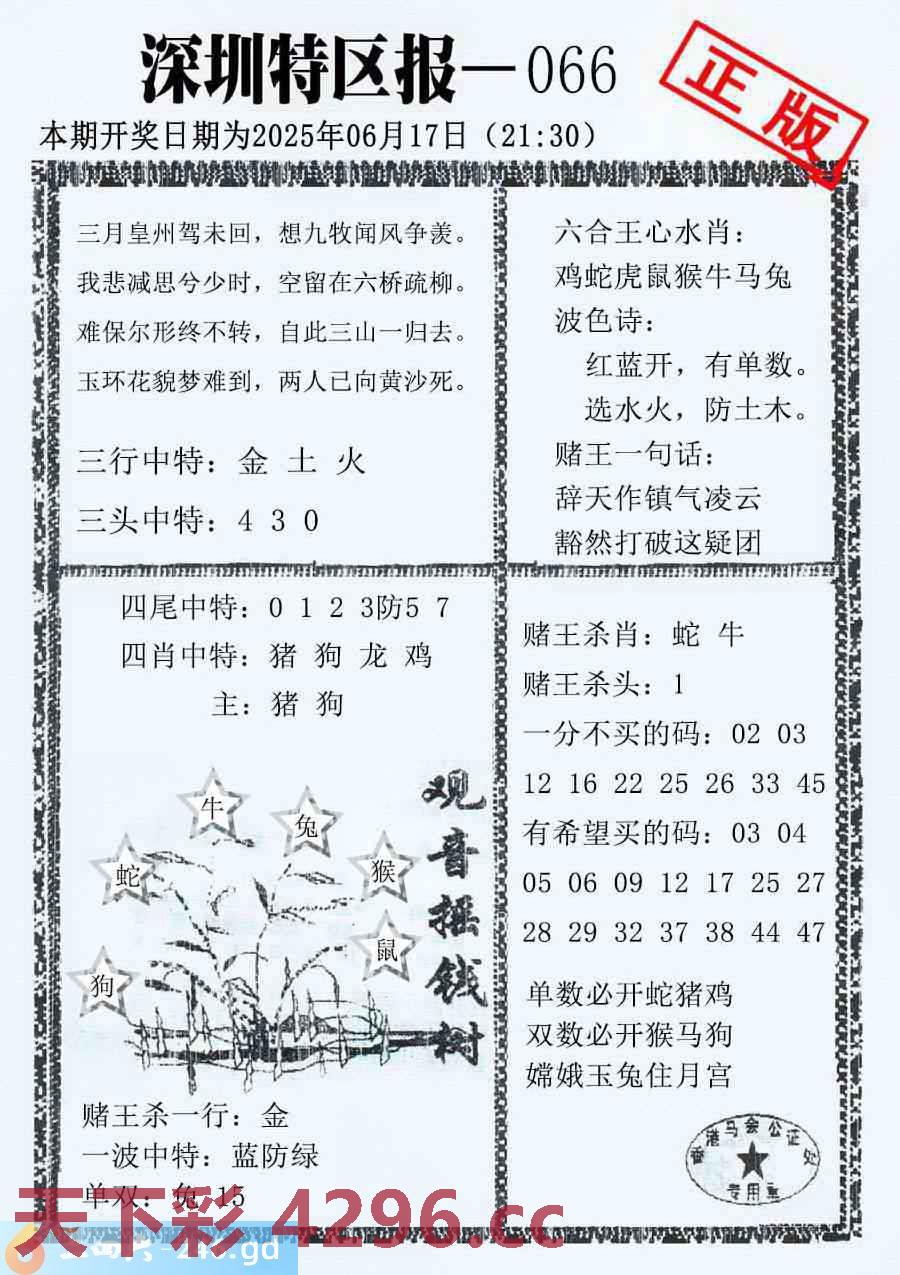 深圳特区报—066
正版
本期开奖日期为2025年06月17日（21:30）
三月皇州驾未回，想九牧闻风争羡。
我悲减思兮少时，空留在六桥疏柳。
难保尔形终不转，自此三山一归去。
玉环花貌梦难到，两人已向黄沙死。
三行中特：金 土 火
三头中特：4 3 0
六合王心水肖：
鸡蛇虎鼠猴牛马兔
波色诗：
红蓝开，有单数。
选水火，防土木。
赌王一句话：
辞天作镇气凌云
豁然打破这疑团
四尾中特：0 1 2 3防5 7
四肖中特：猪 狗 龙 鸡
主：猪 狗
观音摇钱树
牛
兔
蛇
猴
鼠
狗
赌王杀一行：金
一波中特：蓝防绿
单双：兔 15
赌王杀肖：蛇 牛
赌王杀头：1
一分不买的码：02 03
12 16 22 25 26 33 45
有希望买的码：03 04
05 06 09 12 17 25 27
28 29 32 37 38 44 47
单数必开蛇猪鸡
双数必开猴马狗
嫦娥玉兔住月宫
香港马会公证处
专用章
天下彩 4296.cc